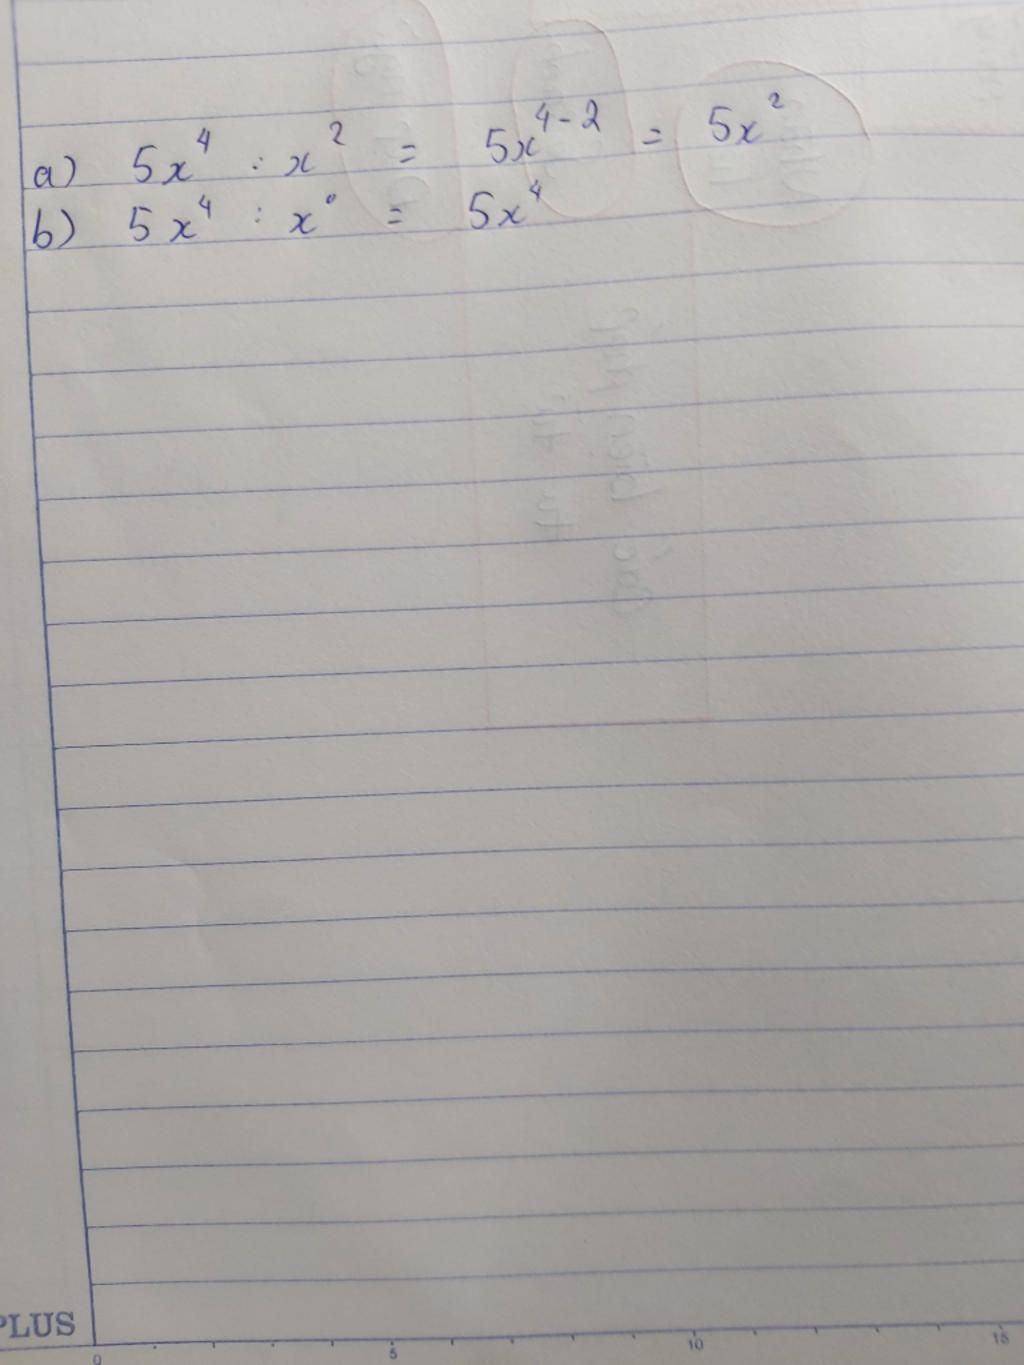 a) 5x⁴ : x² = 5x⁴⁻² = 5x²
b) 5x⁴ : x⁰ = 5x⁴
PLUS
0 5 10 15